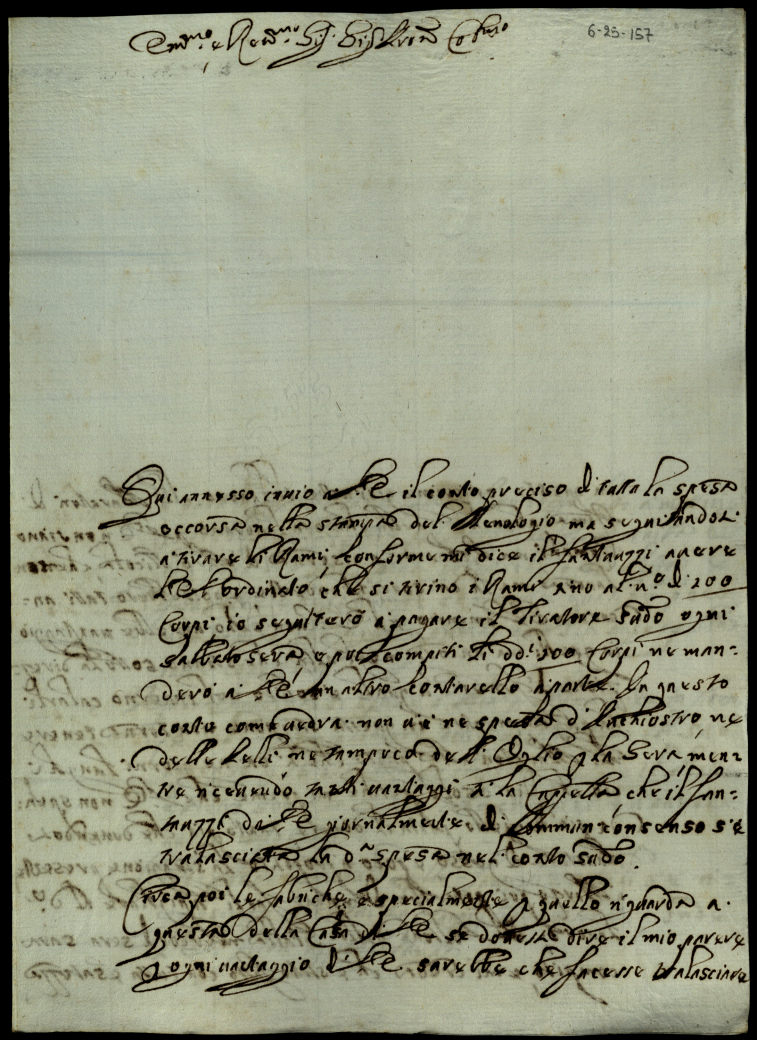 Em.mo e Rev.mo Sig. Sig. Pron. Col.mo
6-25-157
Qui annesso invio a V.E. il conto preciso di tutta la spesa
occorsa nella stampa del Menologio ma seguitandosi
a tirare li Rami, conforme mi dice il Santuzzi avere
V.E. ordinato, che si tirino i Rami sino al n.o di 200
Corpi io seguiterò a pagare il Tiratore sud.o ogni
Sabbato sera, e poi compiti li d.i 200 Corpi ne man=
derò a V.E. un altro contarello a parte. In questo
conto com' vedrà non vi è ne spesa d' Inchiostro, ne
delle Pelli, ne tampoco dell' Oglio p la Sera, men=
tre ricevendo tanti vantaggi la che il San=
tuzzi da V.E. giornalmente, di commun consenso s'è
tralasciata la d.a spesa nel conto sud.o.
Circa poi le fabriche, e specialmente p quello riguarda a
questa della Casa di V.E. se dovesse dire il mio parere
p ogni vantaggio di V.E. sarebbe che facesse tralasciare